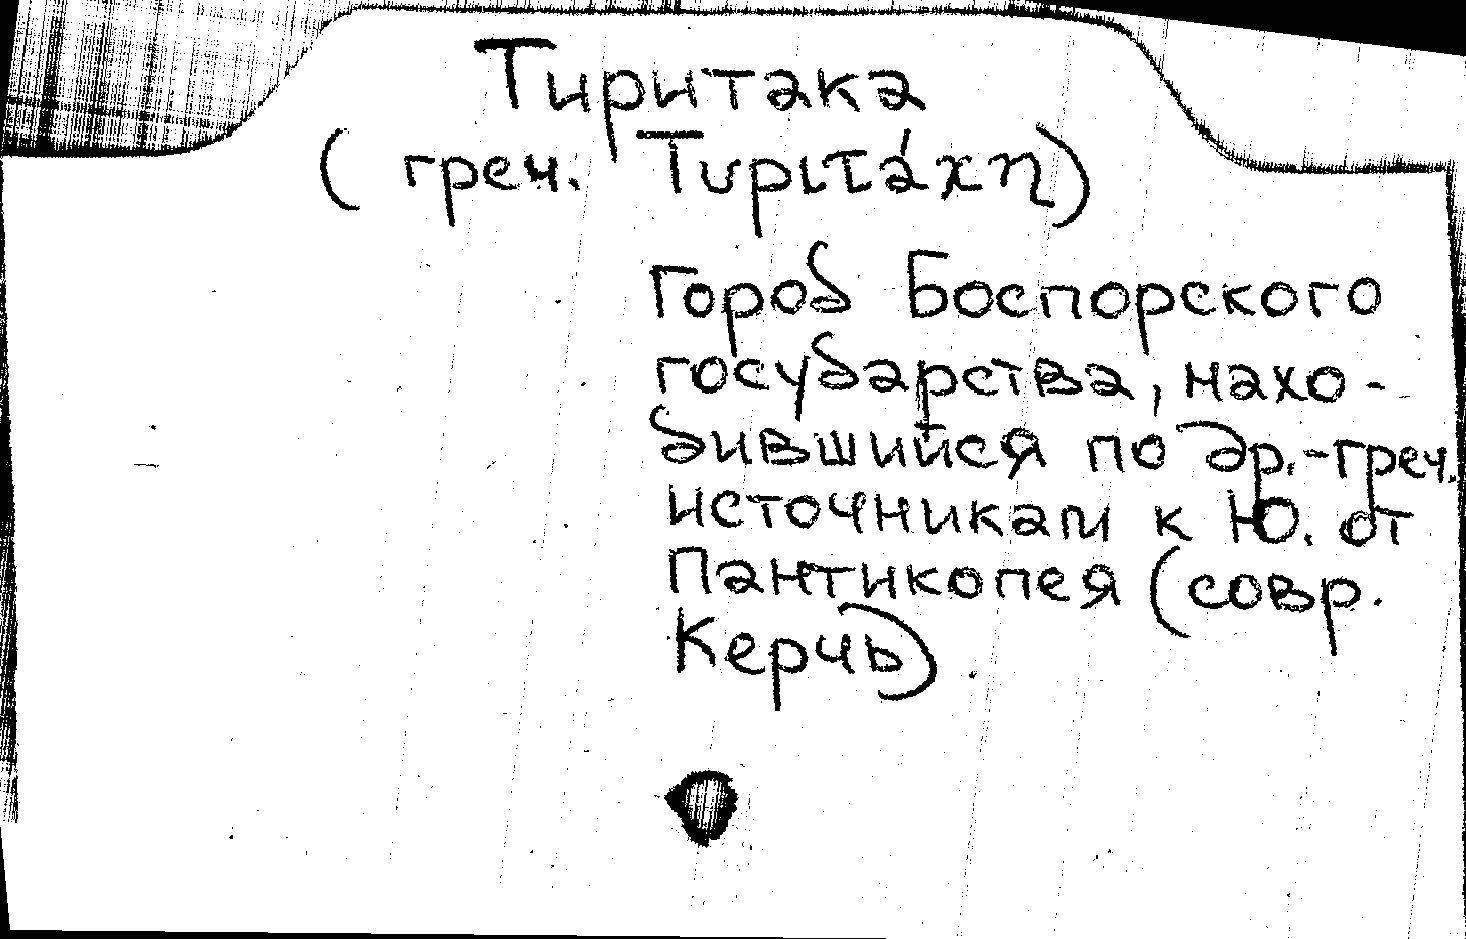 Тиритака
(греч. Τυριτάχη)
Город Боспорского
государства, нахо-
дившийся по др.-греч.
источникам к Ю. от
Пантикопея (совр.
Керчь)